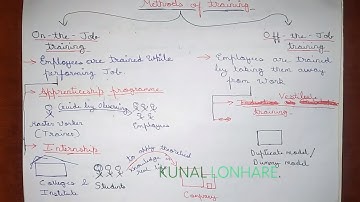 Methods of training
On-the-Job
training
→ Employees are trained while
performing Job.
→ Apprenticeship programme
Guide by observing
Master Worker
(Trainer)
Employees
→ Internship
to apply theoretical
knowledge in
real life
Colleges &
Institute
Students
Company
Off-the-Job
training
→ Employees are trained
by taking them away
from Work
→ Vestibule
training.
Duplicate model /
Dummy model
KUNAL LONHARE